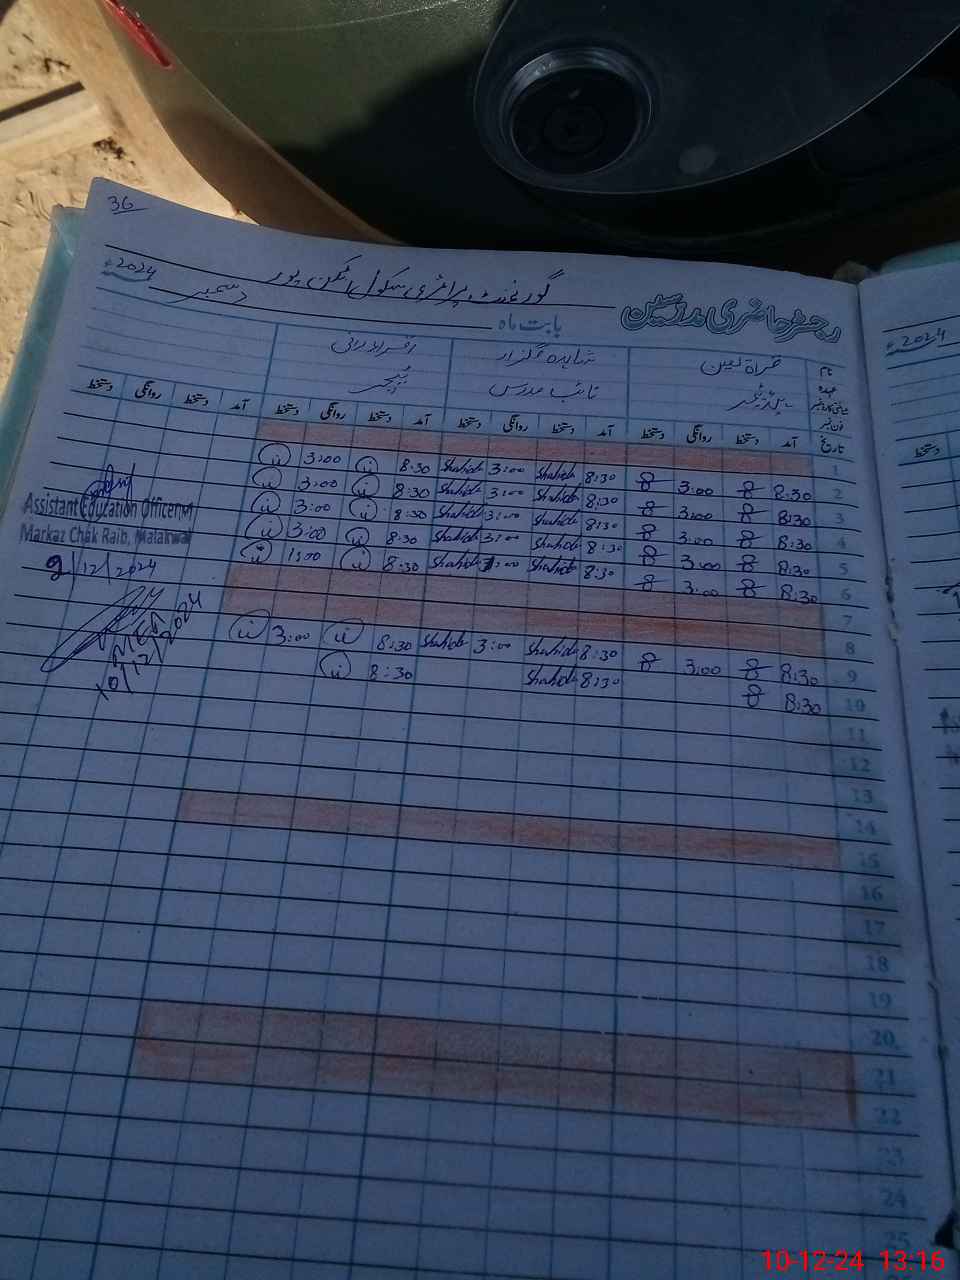 36
گورنمنٹ پرائمری سکول
رجسٹر حاضری مدرسین
بابت ماہ دسمبر 2024ء
2024ء
نام شاہدہ گلزار
عہدہ نائب مدرس ٹیچر
تاریخ آمد دستخط روانگی دستخط آمد دستخط روانگی دستخط آمد دستخط روانگی دستخط آمد دستخط روانگی دستخط
دستخط
1
2 8:30 3:00 8:30 Shahida 3:00 Shahida 8:30 3:00
3 8:30 3:00 8:30 Shahida 3:00 Shahida 8:30 3:00
4 8:30 3:00 8:30 Shahida 3:00 Shahida 8:30 3:00
5 8:30 3:00 8:30 Shahida 3:00 Shahida 8:30 3:00
6 8:30 3:00 8:30 Shahida :00 Shahida 8:30 1:00
7
8
9 8:30 3:00 8:30 Shahida 3:00 Shahida 8:30 3:00
10 8:30 8:30 Shahida 8:30
11
12
13
14
15
16
17
18
19
20
21
22
23
24
25
Assistant Education Officer
Markaz Chak Raib, Malakwal
2/12/2024
MEA
10/12/2024
10-12-24 13:16